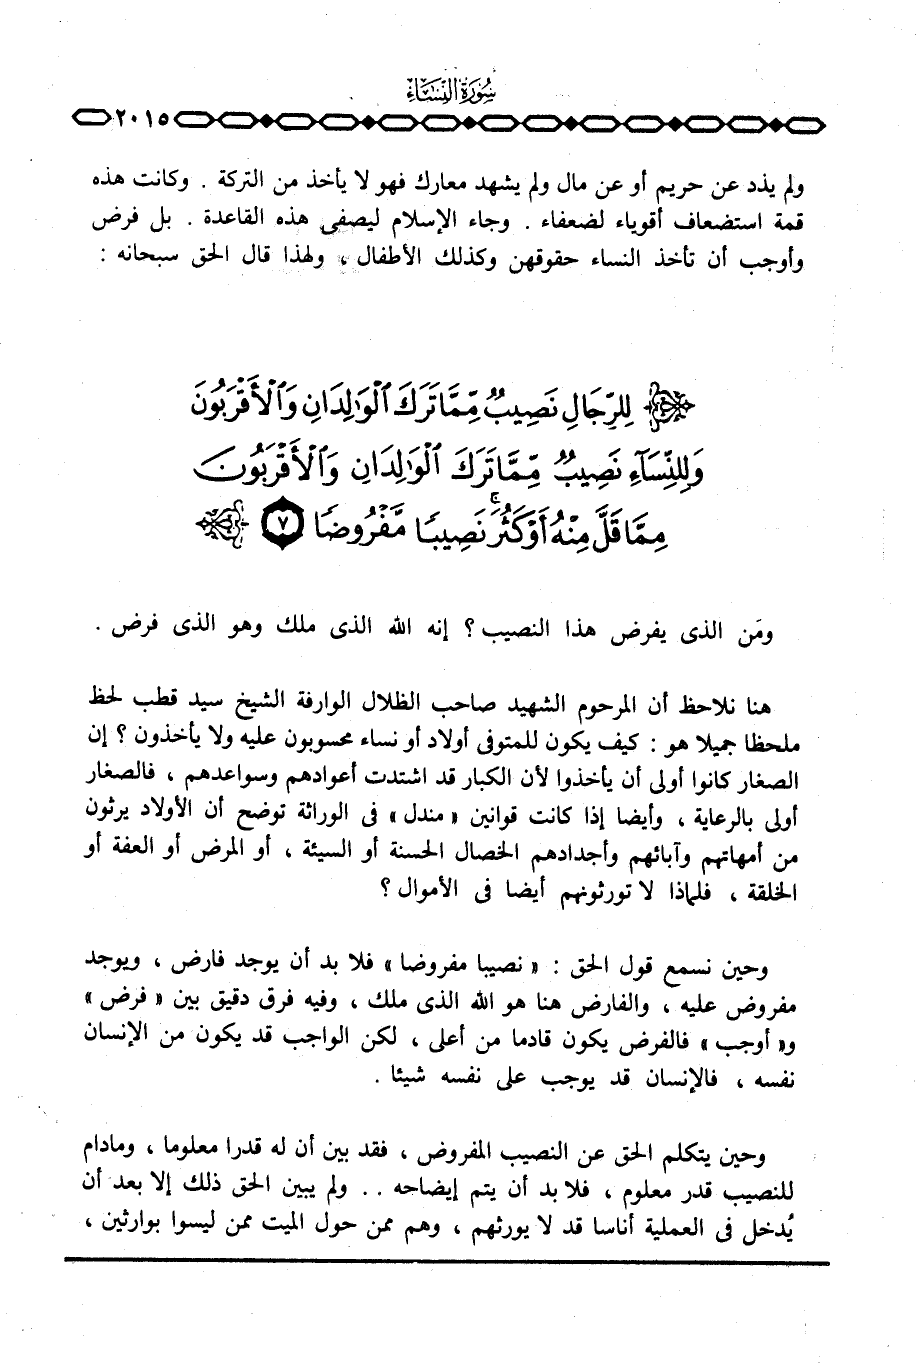 سُورَةُ النِّسَاء
٢٠١٥
ولم يذد عن حريم أو عن مال ولم يشهد معارك فهو لا يأخذ من التركة . وكانت هذه
قمة استضعاف أقوياء لضعفاء . وجاء الإسلام ليصفى هذه القاعدة . بل فرض
وأوجب أن تأخذ النساء حقوقهن وكذلك الأطفال ، ولهذا قال الحق سبحانه :
لِلرِّجَالِ نَصِيبٌ مِّمَّا تَرَكَ ٱلْوَٰلِدَانِ وَٱلْأَقْرَبُونَ
وَلِلنِّسَآءِ نَصِيبٌ مِّمَّا تَرَكَ ٱلْوَٰلِدَانِ وَٱلْأَقْرَبُونَ
مِمَّا قَلَّ مِنْهُ أَوْ كَثُرَ ۚ نَصِيبًا مَّفْرُوضًا ٧
ومَن الذى يفرض هذا النصيب ؟ إنه الله الذى ملك وهو الذى فرض .
هنا نلاحظ أن المرحوم الشهيد صاحب الظلال الوارفة الشيخ سيد قطب لحظ
ملحظا جميلا هو : كيف يكون للمتوفى أولاد أو نساء محسوبون عليه ولا يأخذون ؟ إن
الصغار كانوا أولى أن يأخذوا لأن الكبار قد اشتدت أعوادهم وسواعدهم ، فالصغار
أولى بالرعاية ، وأيضا إذا كانت قوانين « مندل » فى الوراثة توضح أن الأولاد يرثون
من أمهاتهم وآبائهم وأجدادهم الخصال الحسنة أو السيئة ، أو المرض أو العفة أو
الخلقة ، فلماذا لا تورثونهم أيضا فى الأموال ؟
وحين نسمع قول الحق : « نصيبا مفروضا » فلا بد أن يوجد فارض ، ويوجد
مفروض عليه ، والفارض هنا هو الله الذى ملك ، وفيه فرق دقيق بين « فرض »
و« أوجب » فالفرض يكون قادما من أعلى ، لكن الواجب قد يكون من الإنسان
نفسه ، فالإنسان قد يوجب على نفسه شيئا .
وحين يتكلم الحق عن النصيب المفروض ، فقد بين أن له قدرا معلوما ، ومادام
للنصيب قدر معلوم ، فلا بد أن يتم إيضاحه . . ولم يبين الحق ذلك إلا بعد أن
يُدخل فى العملية أناسا قد لا يورثهم ، وهم ممن حول الميت ممن ليسوا بوارثين ،